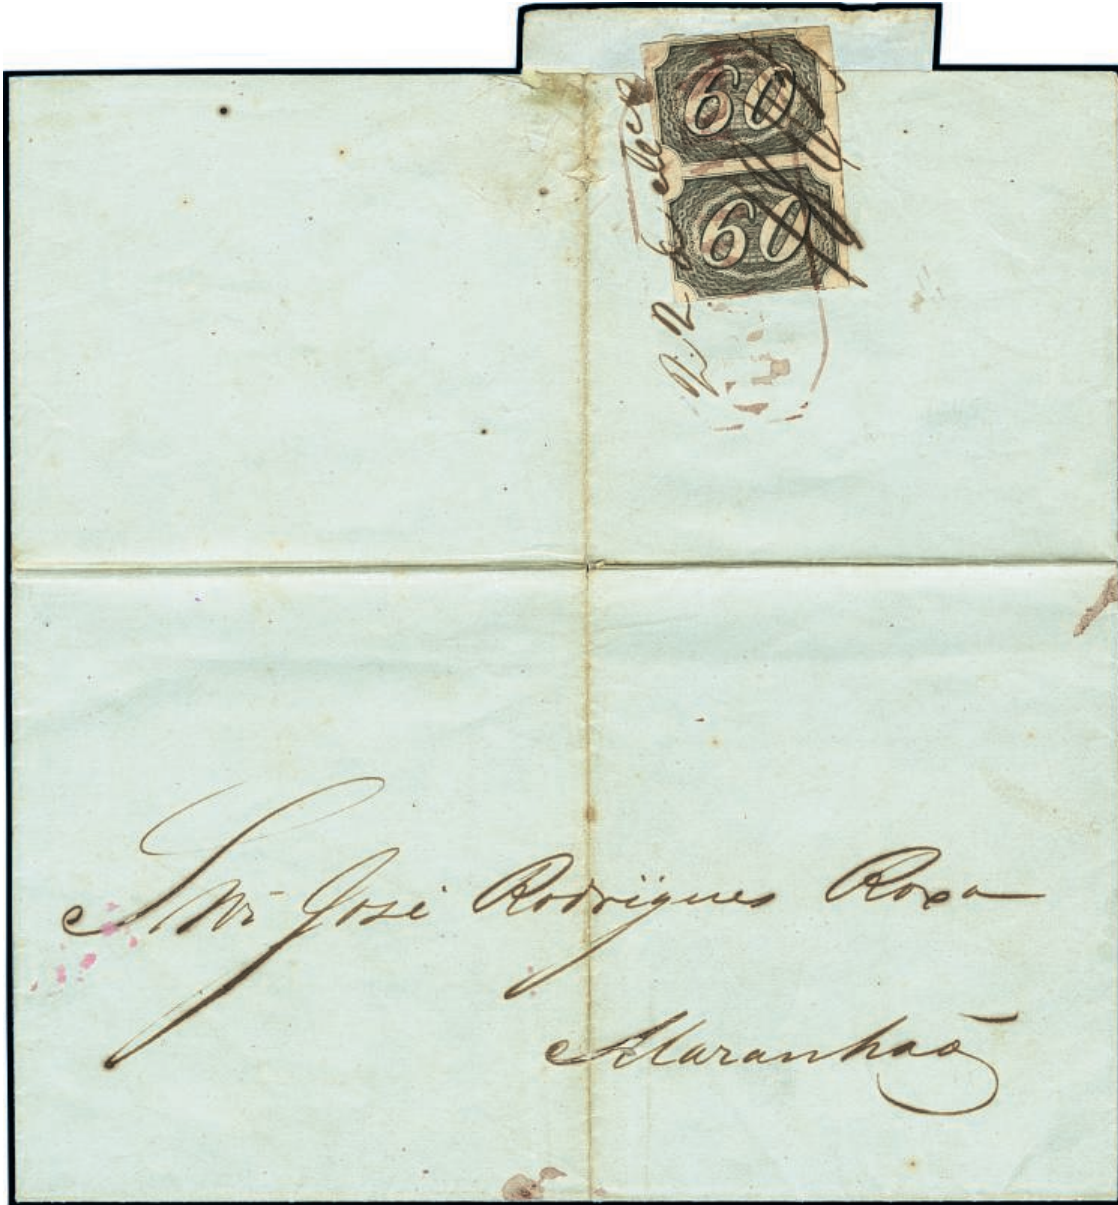 60
60
Snr José Rodrigues Roxa
Maranhão